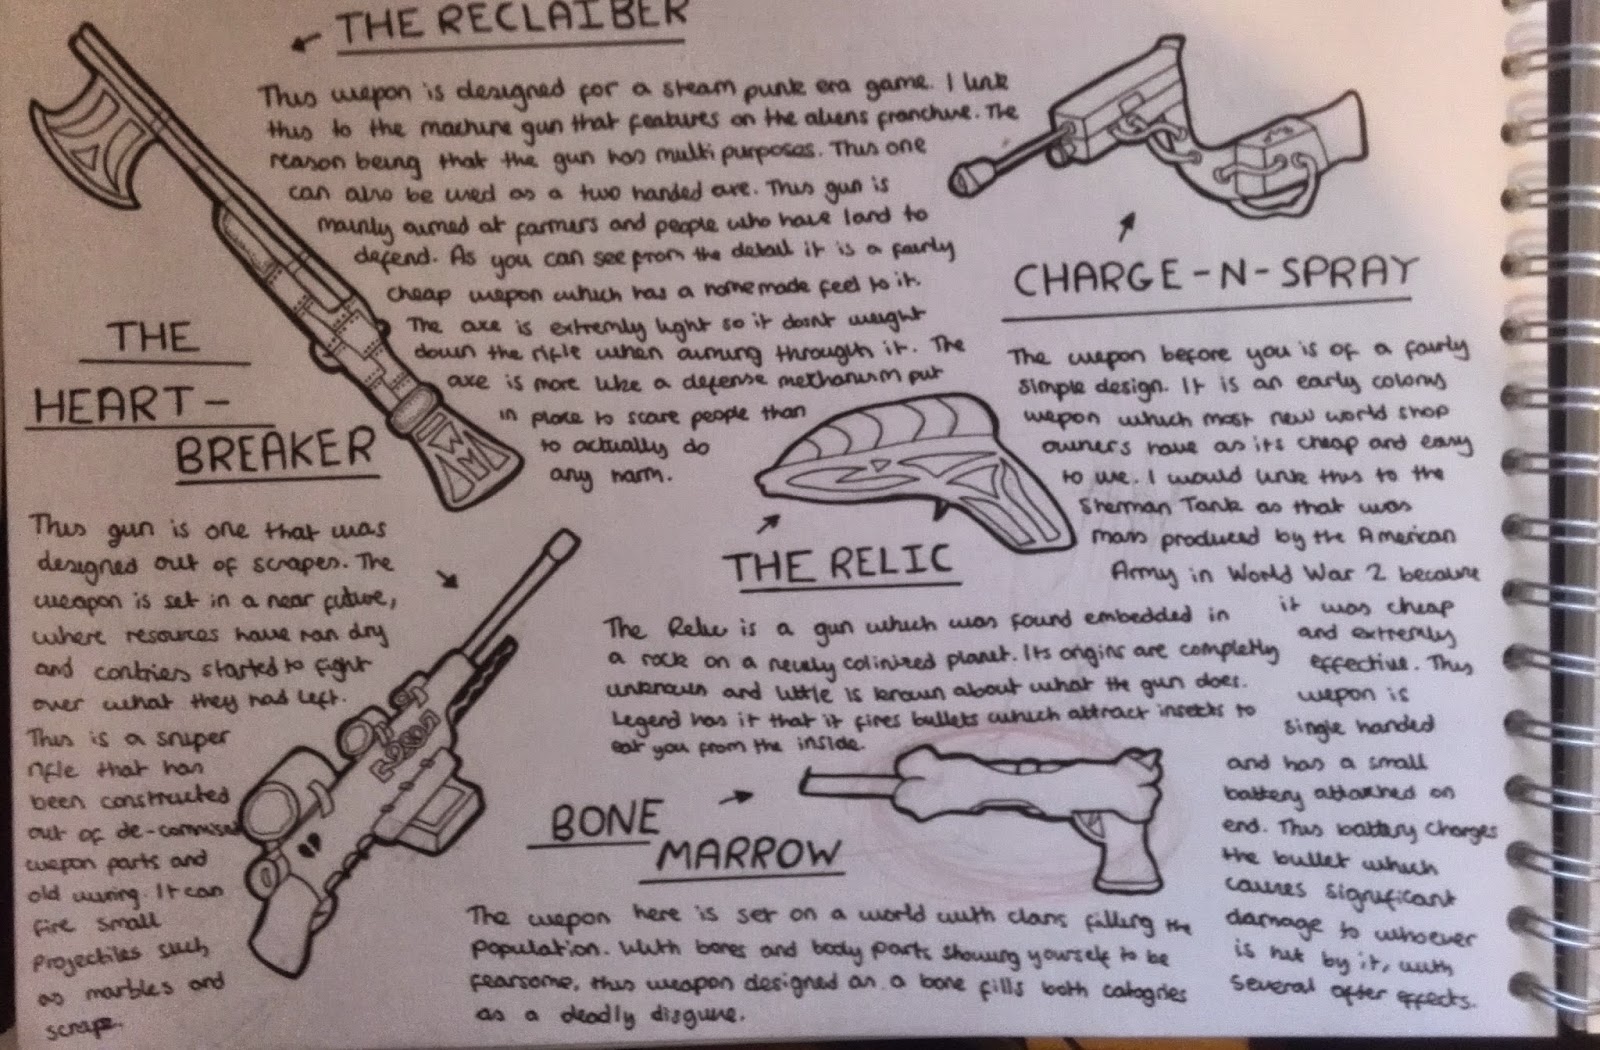 THE RECLAIBER
This wepon is designed for a steam punk era game. I link
this to the machine gun that features on the aliens franchise. The
reason being that the gun has multi purposes. This one
can also be used as a two handed axe. This gun is
mainly aimed at farmers and people who have land to
defend. As you can see from the detail it is a fairly
cheap wepon which has a homemade feel to it.
The axe is extremly light so it dosnt weight
down the rifle when aiming through it. The
axe is more like a defense mechanism put
in place to scare people than
to actually do
any harm.
CHARGE-N-SPRAY
The wepon before you is of a fairly
simple design. It is an early colonys
wepon which most new world shop
owners have as its cheap and easy
to use. I would link this to the
Sherman Tank as that was
mass produced by the American
Army in World War 2 because
it was cheap
and extremly
effective. This
wepon is
single handed
and has a small
battery attatched on
end. This battery charges
the bullet which
causes significant
damage to whoever
is hit by it, with
several after effects.
THE
HEART-
BREAKER
This gun is one that was
designed out of scrapes. The
weapon is set in a near future,
where resources have ran dry
and contries started to fight
over what they had left.
This is a sniper
rifle that has
been constructed
out of de-commised
wepon parts and
old wiring. It can
fire small
projectiles such
as marbles and
scrape.
THE RELIC
The Relic is a gun which was found embedded in
a rock on a newly colinized planet. Its origins are completly
unknown and little is known about what the gun does.
Legend has it that it fires bullets which attract insects to
eat you from the inside.
BONE
MARROW
The wepon here is set on a world with clans filling the
population. With bones and body parts showing yourself to be
fearsome, this weapon designed as a bone fills both catogries
as a deadly disguise.